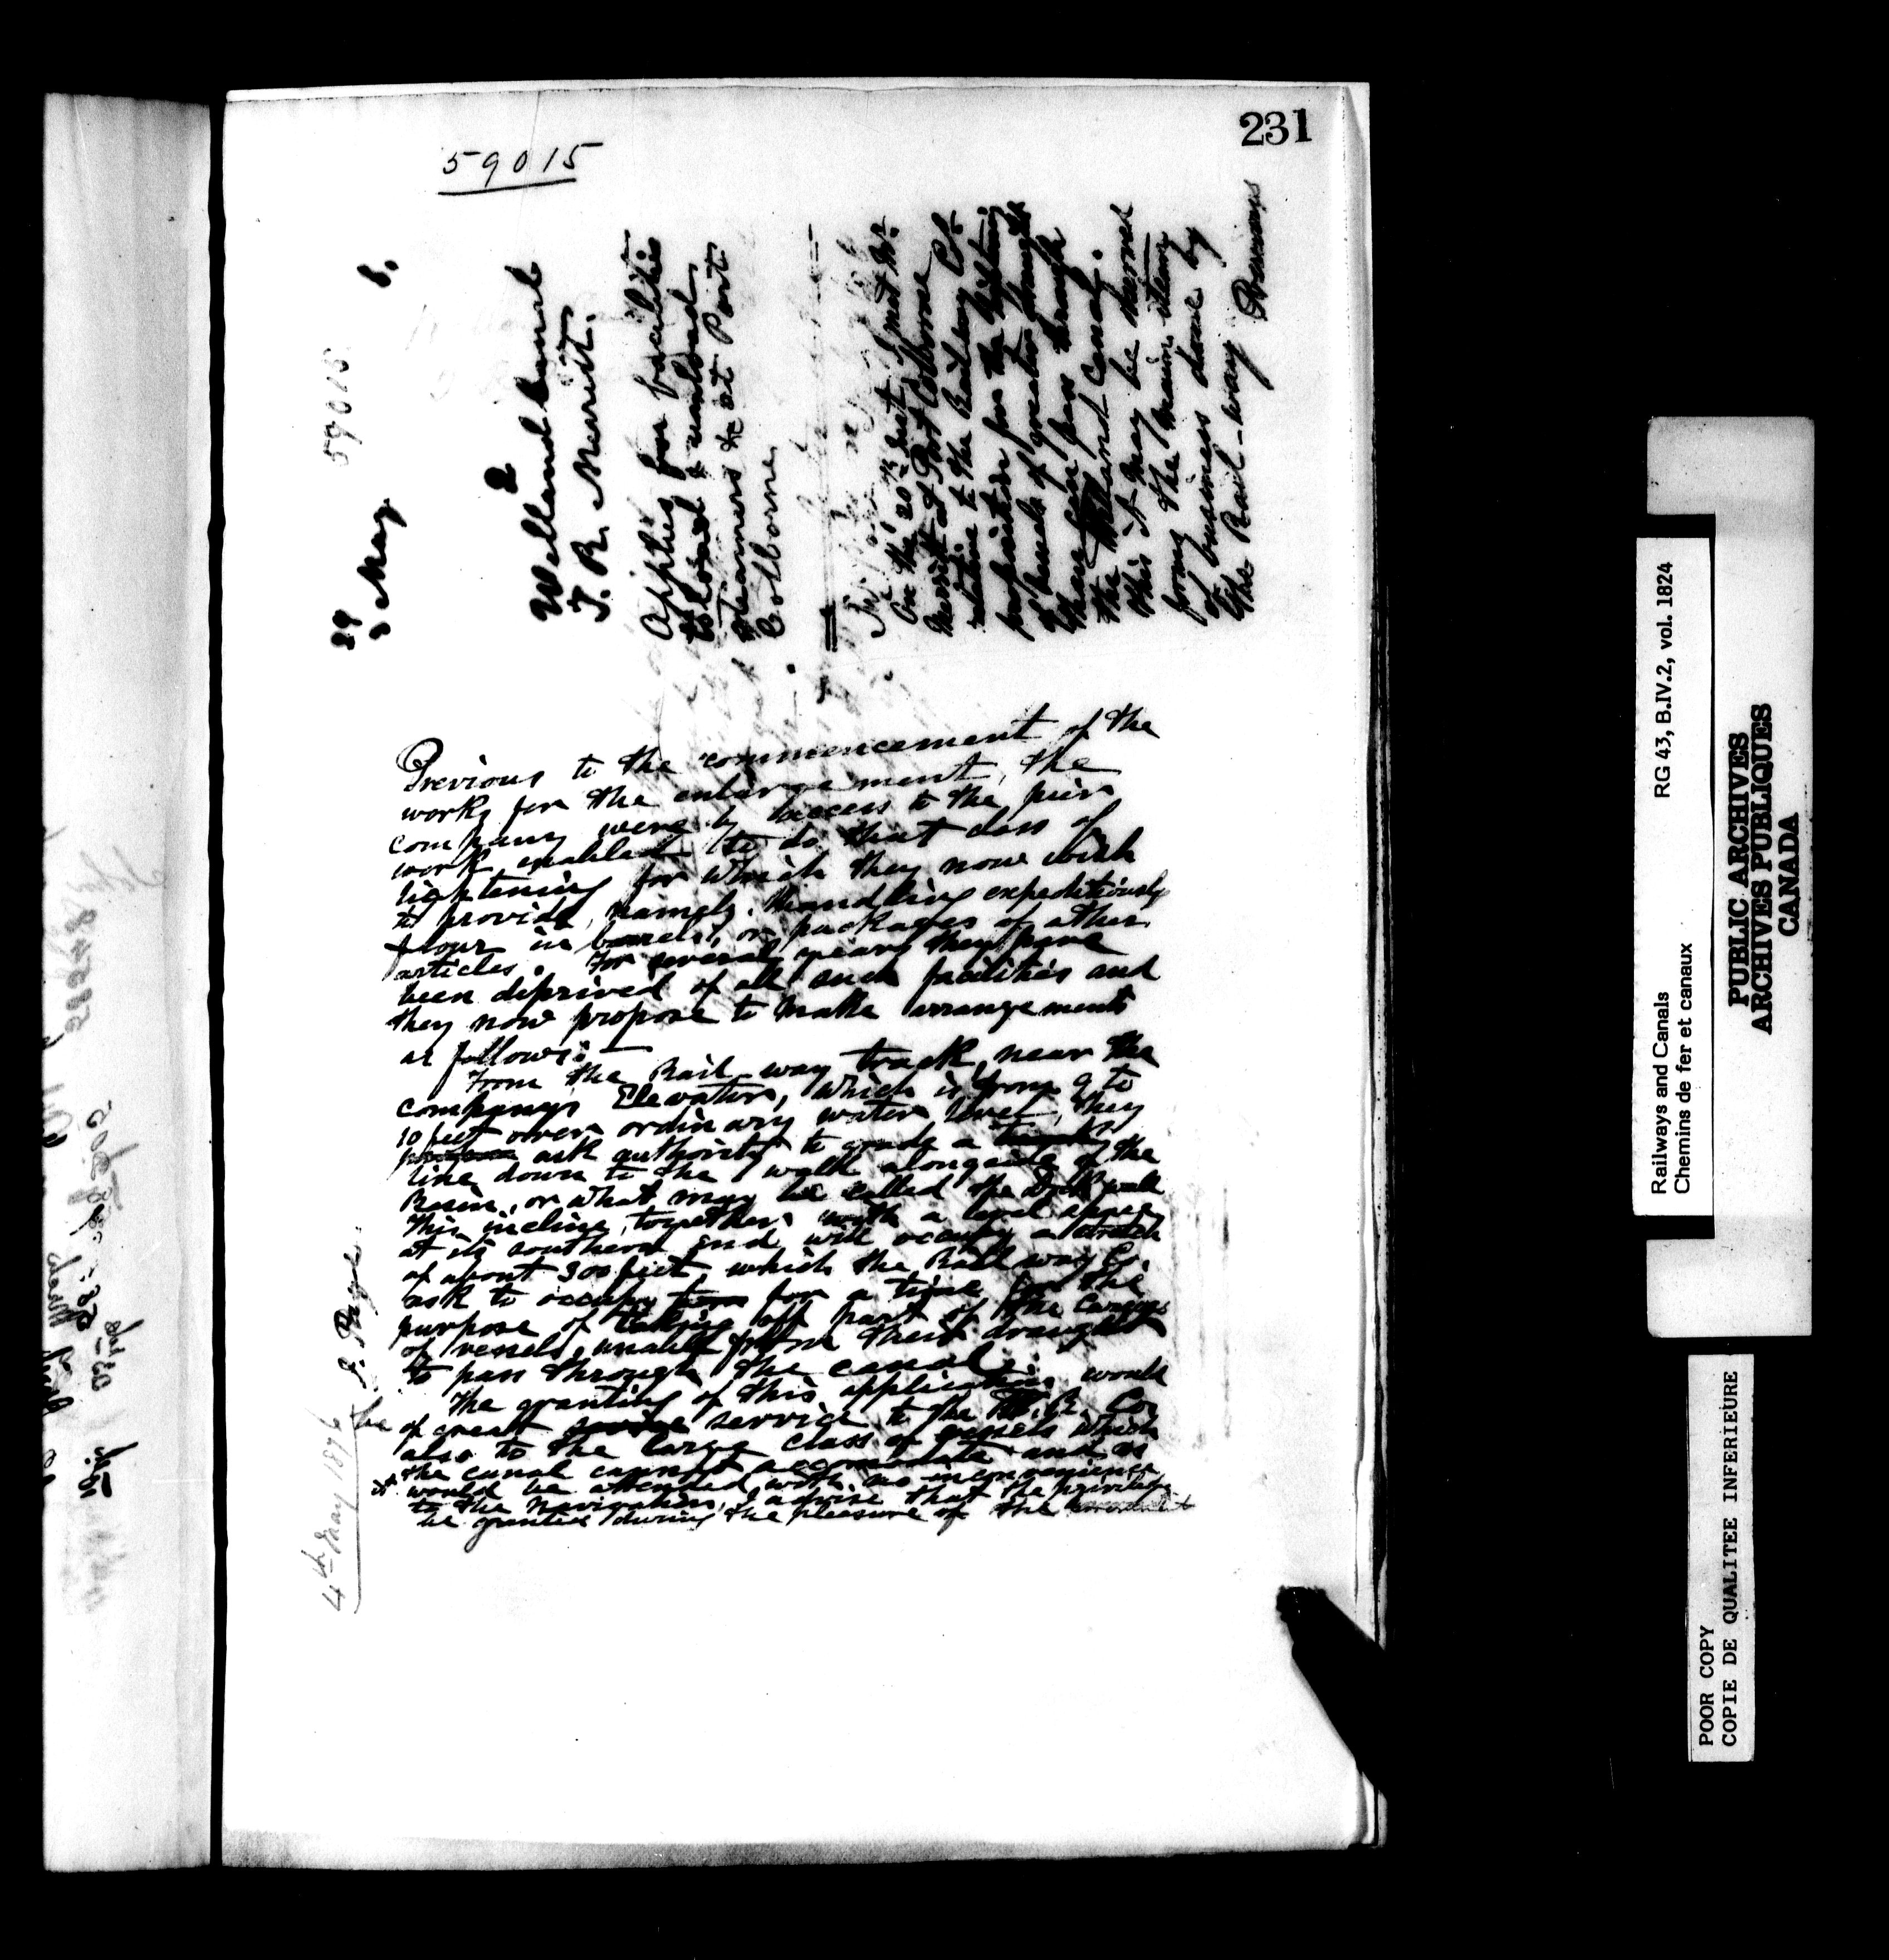 231
59015
59015
29 May 6.
2
Welland Canal
T. R. Merritt.
Applies for facilities
to load & unload
steamers &c at Port
Colborne
On the 20th inst I met Mr.
Merritt at Port Colborne
relative to the Railway Co's.
proposition for the lightening
of vessels of greater draught
than can pass through
the Welland Canal.
This it may be observed
forms the main item
of business done by
the Rail-way
Previous to the commencement of the
works for the enlargement, the
company were by access to the piers
work enabled to do that class of
lightening for which they now wish
to provide, namely. Handling expeditiously
flour in barrels, or packages of other
articles. For several years they have
been deprived of all such facilities and
they now propose to make arrangements
as follows:—
From the Rail-way track, near the
company's Elevator, which is from 9 to
10 feet over ordinary water level, they
ask authority to grade a
line down to the wall alongside of the
Basin, or what may be called the Dock wall
This incline, together with a level space
at its southern end will occupy a stretch
of about 300 feet, which the Railway Co.
ask to occupy for a time for the
purpose of taking off part of the cargoes
of vessels, unable from their draught
to pass through the canal.
The granting of this application would
be of great service to the W. R. Co,
also to the large class of vessels which
the canal cannot accomodate and as
it would be attended with no inconvenience
to the navigation, I advise that the privilege
be granted during the pleasure of the
J. Page
4th May 1876
Railways and Canals RG 43, B.IV.2, vol. 1824
Chemins de fer et canaux
PUBLIC ARCHIVES
ARCHIVES PUBLIQUES
CANADA
POOR COPY
COPIE DE QUALITEE INFERIEURE